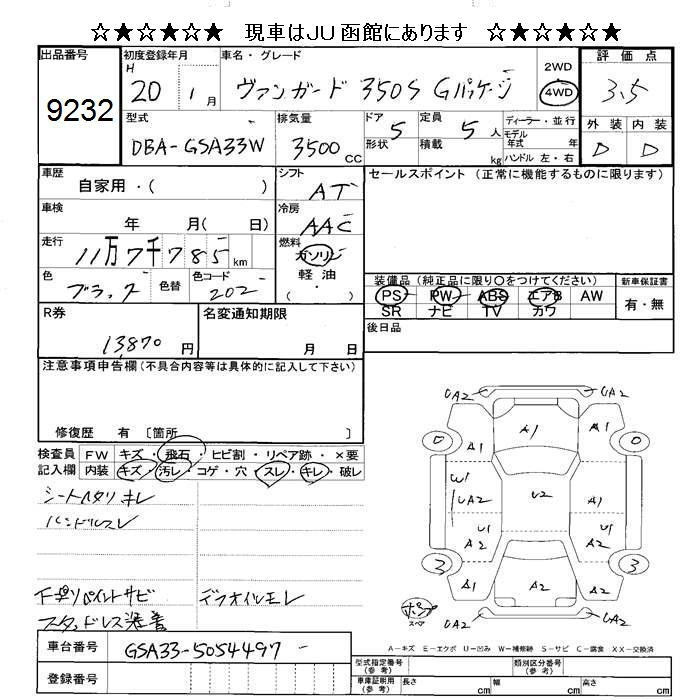 ☆★☆★☆★ 現車はJU函館にあります ☆★☆★☆★
出品番号
9232
初度登録年月
H 20 1月
車名・グレード
ヴァンガード 350S Gパッケージ
2WD
4WD
評価点
3.5
外装 内装
D D
型式
DBA-GSA33W
排気量
3500 CC
ドア 5
形状
定員 5人
積載 kg
ディーラー・並行
モデル年式 年
ハンドル 左・右
車歴
自家用・( )
シフト
AT
セールスポイント (正常に機能するものに限ります)
車検
年 月( 日)
冷房
AAC
走行
11万7千785km
燃料
ガソリン
軽油
・( )
色
ブラック
色替
色コード
202
装備品 (純正品に限り○をつけてください)
PS PW ABS エアB AW
SR ナビ TV カワ
新車保証書
有・無
R券
13,870円
名変通知期限
月 日
後日品
注意事項申告欄 (不具合内容等は具体的に記入して下さい)
修復歴 有 〔箇所 〕
検査員記入欄
FW キズ・飛石・ヒビ割・リペア跡・×要
内装 キズ・汚レ・コゲ・穴・スレ・キレ・破レ
シートヘタリ キレ
ハンドルスレ
下廻りペイントサビ
デフオイルモレ
スタッドレス装着
UA2 UA2
A1 A1 A1
0 0
W1
UA2 U2 A1
U1 U1
A2 A2
3 3
A1 A2 A2
UA2 UA2
スペア
A=キズ E=エクボ U=凹み W=補修跡 S=サビ C=腐食 XX=交換済
車台番号
GSA33-5054497
登録番号
型式指定番号 (参考)
類別区分番号 (参考)
車庫証明用 (参考)
長さ cm
幅 cm
高さ cm